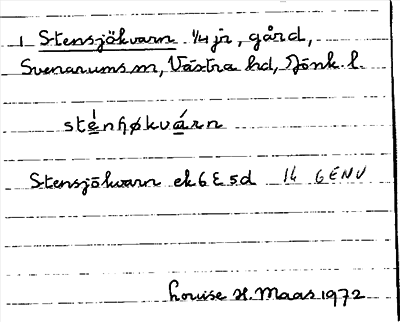 1 Stensjökvarn 1/4 jr, gård,
Svenarums sn, Västra hd, Jönk. l.
sténhøkvárn
Stensjökvarn ek 6 E 5d 14 6ENV
Louise H. Maas 1972